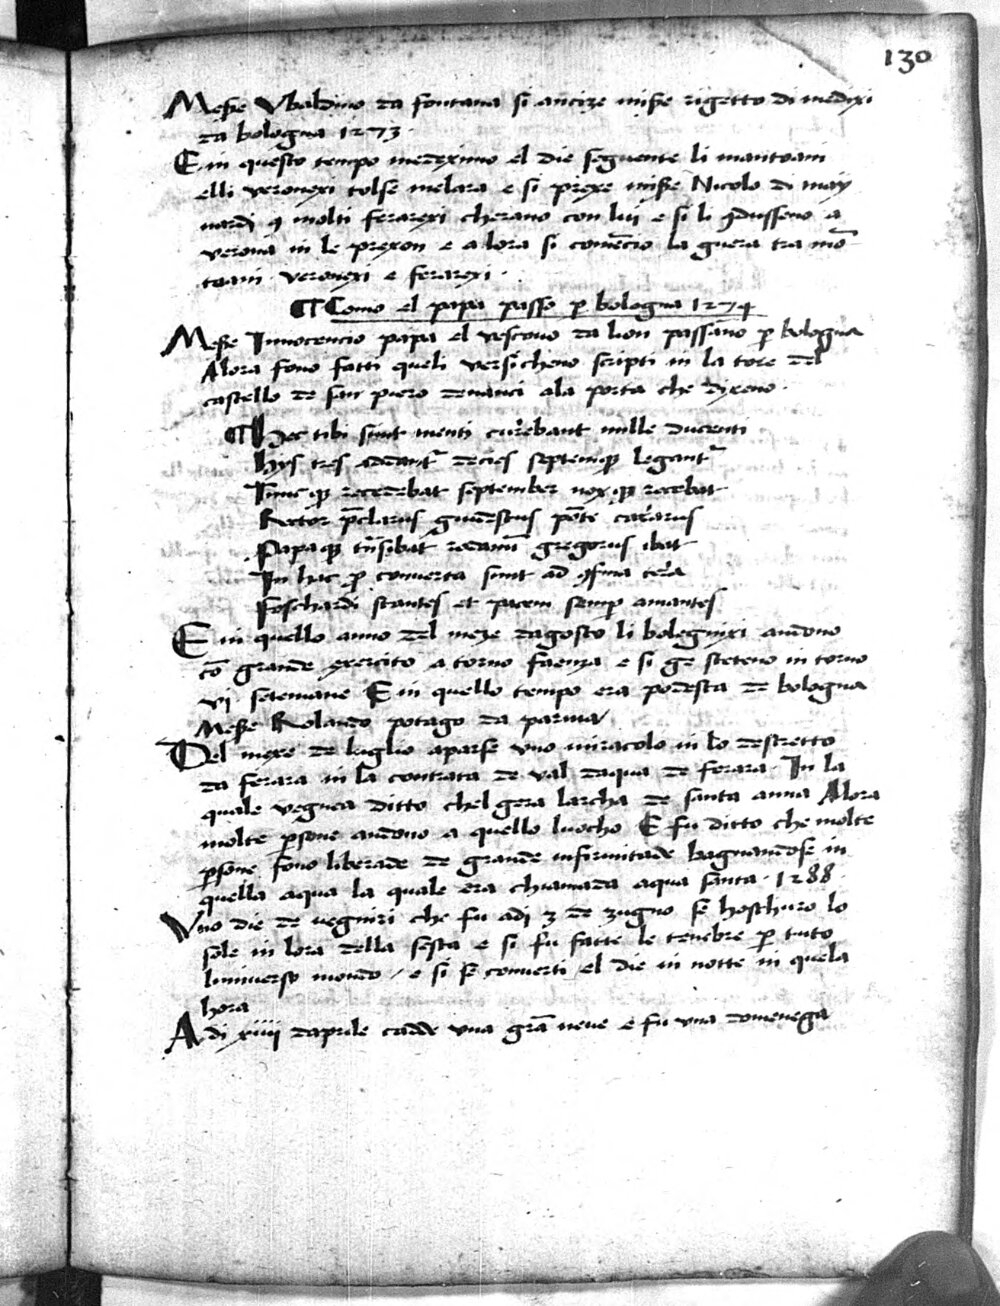 130
Messe Ubaldino da fontana si ancize misse rigetto di medixi
da bologna 1273 ·
E in questo tempo medeximo el die seguente li mantoani
elli veronexi tolse melara e si prexe misse Nicolo di may
nardi molti ferarexi cherano con lui e si li 9dusseno a
verona in le prexon e alora si comēcio la guera tra mō
toani · veronexi e ferarexi ·
¶ Como el papa passo p bologna 1274
Messe Innocencio papa el vescovo da lion passano p bologna
Alora fono fatti queli versi cheno scripti in la tore del
castello de san piero denanci ala porta che dixeno ·
¶ Hec tibi sunt menti curebant mille ducenti
hys tres addantr decies septemq legantr
Tuncq recedebat september noxq recebat
Rector p̄clarus
Papaq trīsibat gregorius ibat
In hac p converta sunt ad tera
Foschardi stantes et pacem semp amantes
E in quello anno del mexe dagosto li bolegnixi andono
cō grande exercito a torno faenza e si ge steteno in torno
vi setemane E in quello tempo era podesta de bologna
Messe Rolando potago da parma
Del mexe de luglio aparse uno miracolo in lo destretto
da ferara in la contrata de val daqua de ferara · In la
quale vegnea ditto chel gera larcha de santa anna Alora
molte psone andono a quello luocho E fu ditto che molte
psone fono liberade de grande infirmitade bagnandose in
quella aqua la quale era chiamada aqua santa · 1288 ·
Uno die de vegniri che fu adi 3 de zugno se hoschuro lo
sole in lora della sesta e si fu fatte le tenebre p tuto
luniverso mondo / e si se converti el die in notte in quela
hora
Adi xiiii daprile cadde una grā neve e fu una domenega